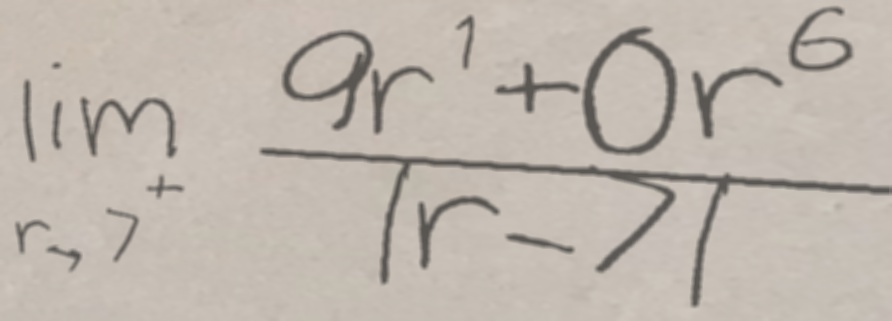 lim_{r→7^+} \frac{9r^1+0r^6}{|r-7|}